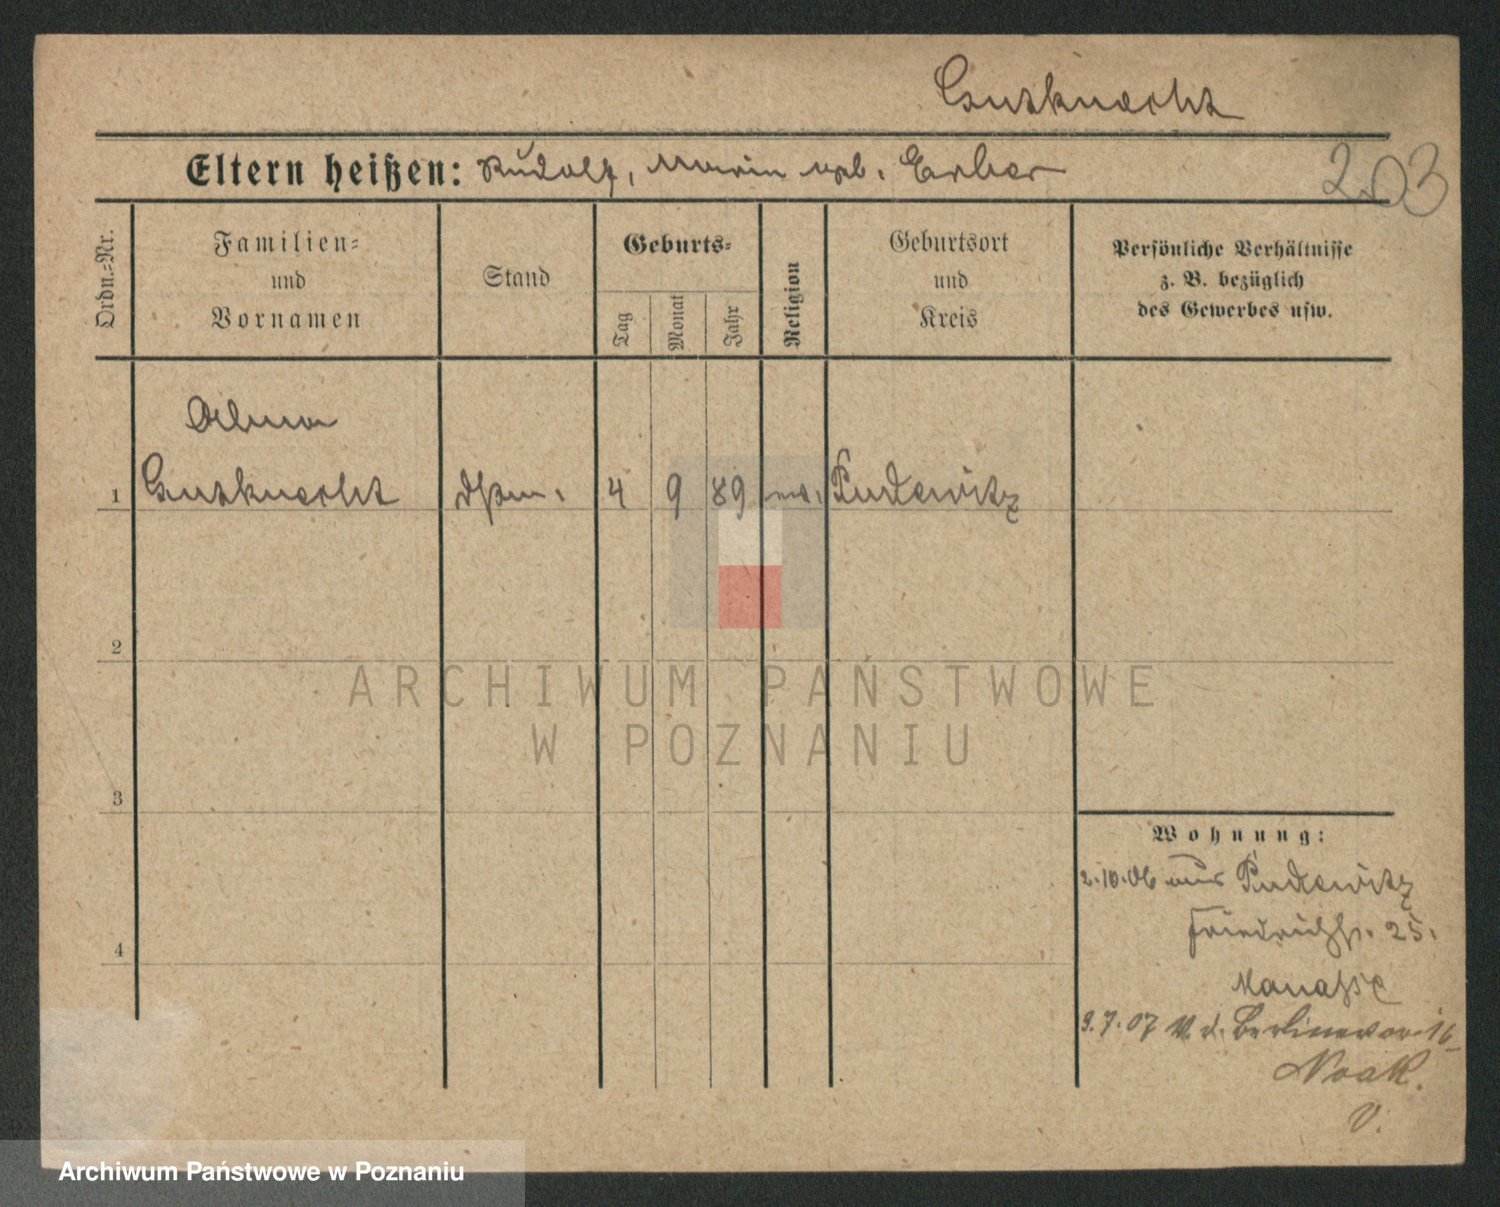 Gutknecht
Eltern heißen: Rudolf, Maria geb. Erber
203
Ordn.=Nr.
Familien=
und
Vornamen
Stand
Geburts=
Tag
Monat
Jahr
Religion
Geburtsort
und
Kreis
Persönliche Verhältnisse
z. B. bezüglich
des Gewerbes usw.
Alma
1 Gutknecht 4 9 89 Pudewitz
2
ARCHIWUM PAŃSTWOWE
W POZNANIU
3
Wohnung:
2.10.06 aus Pudewitz
4
Friedrichstr. 25.
Manasse
9.7.07 v. d. Berlinertor 16
Noak.
V.
Archiwum Państwowe w Poznaniu